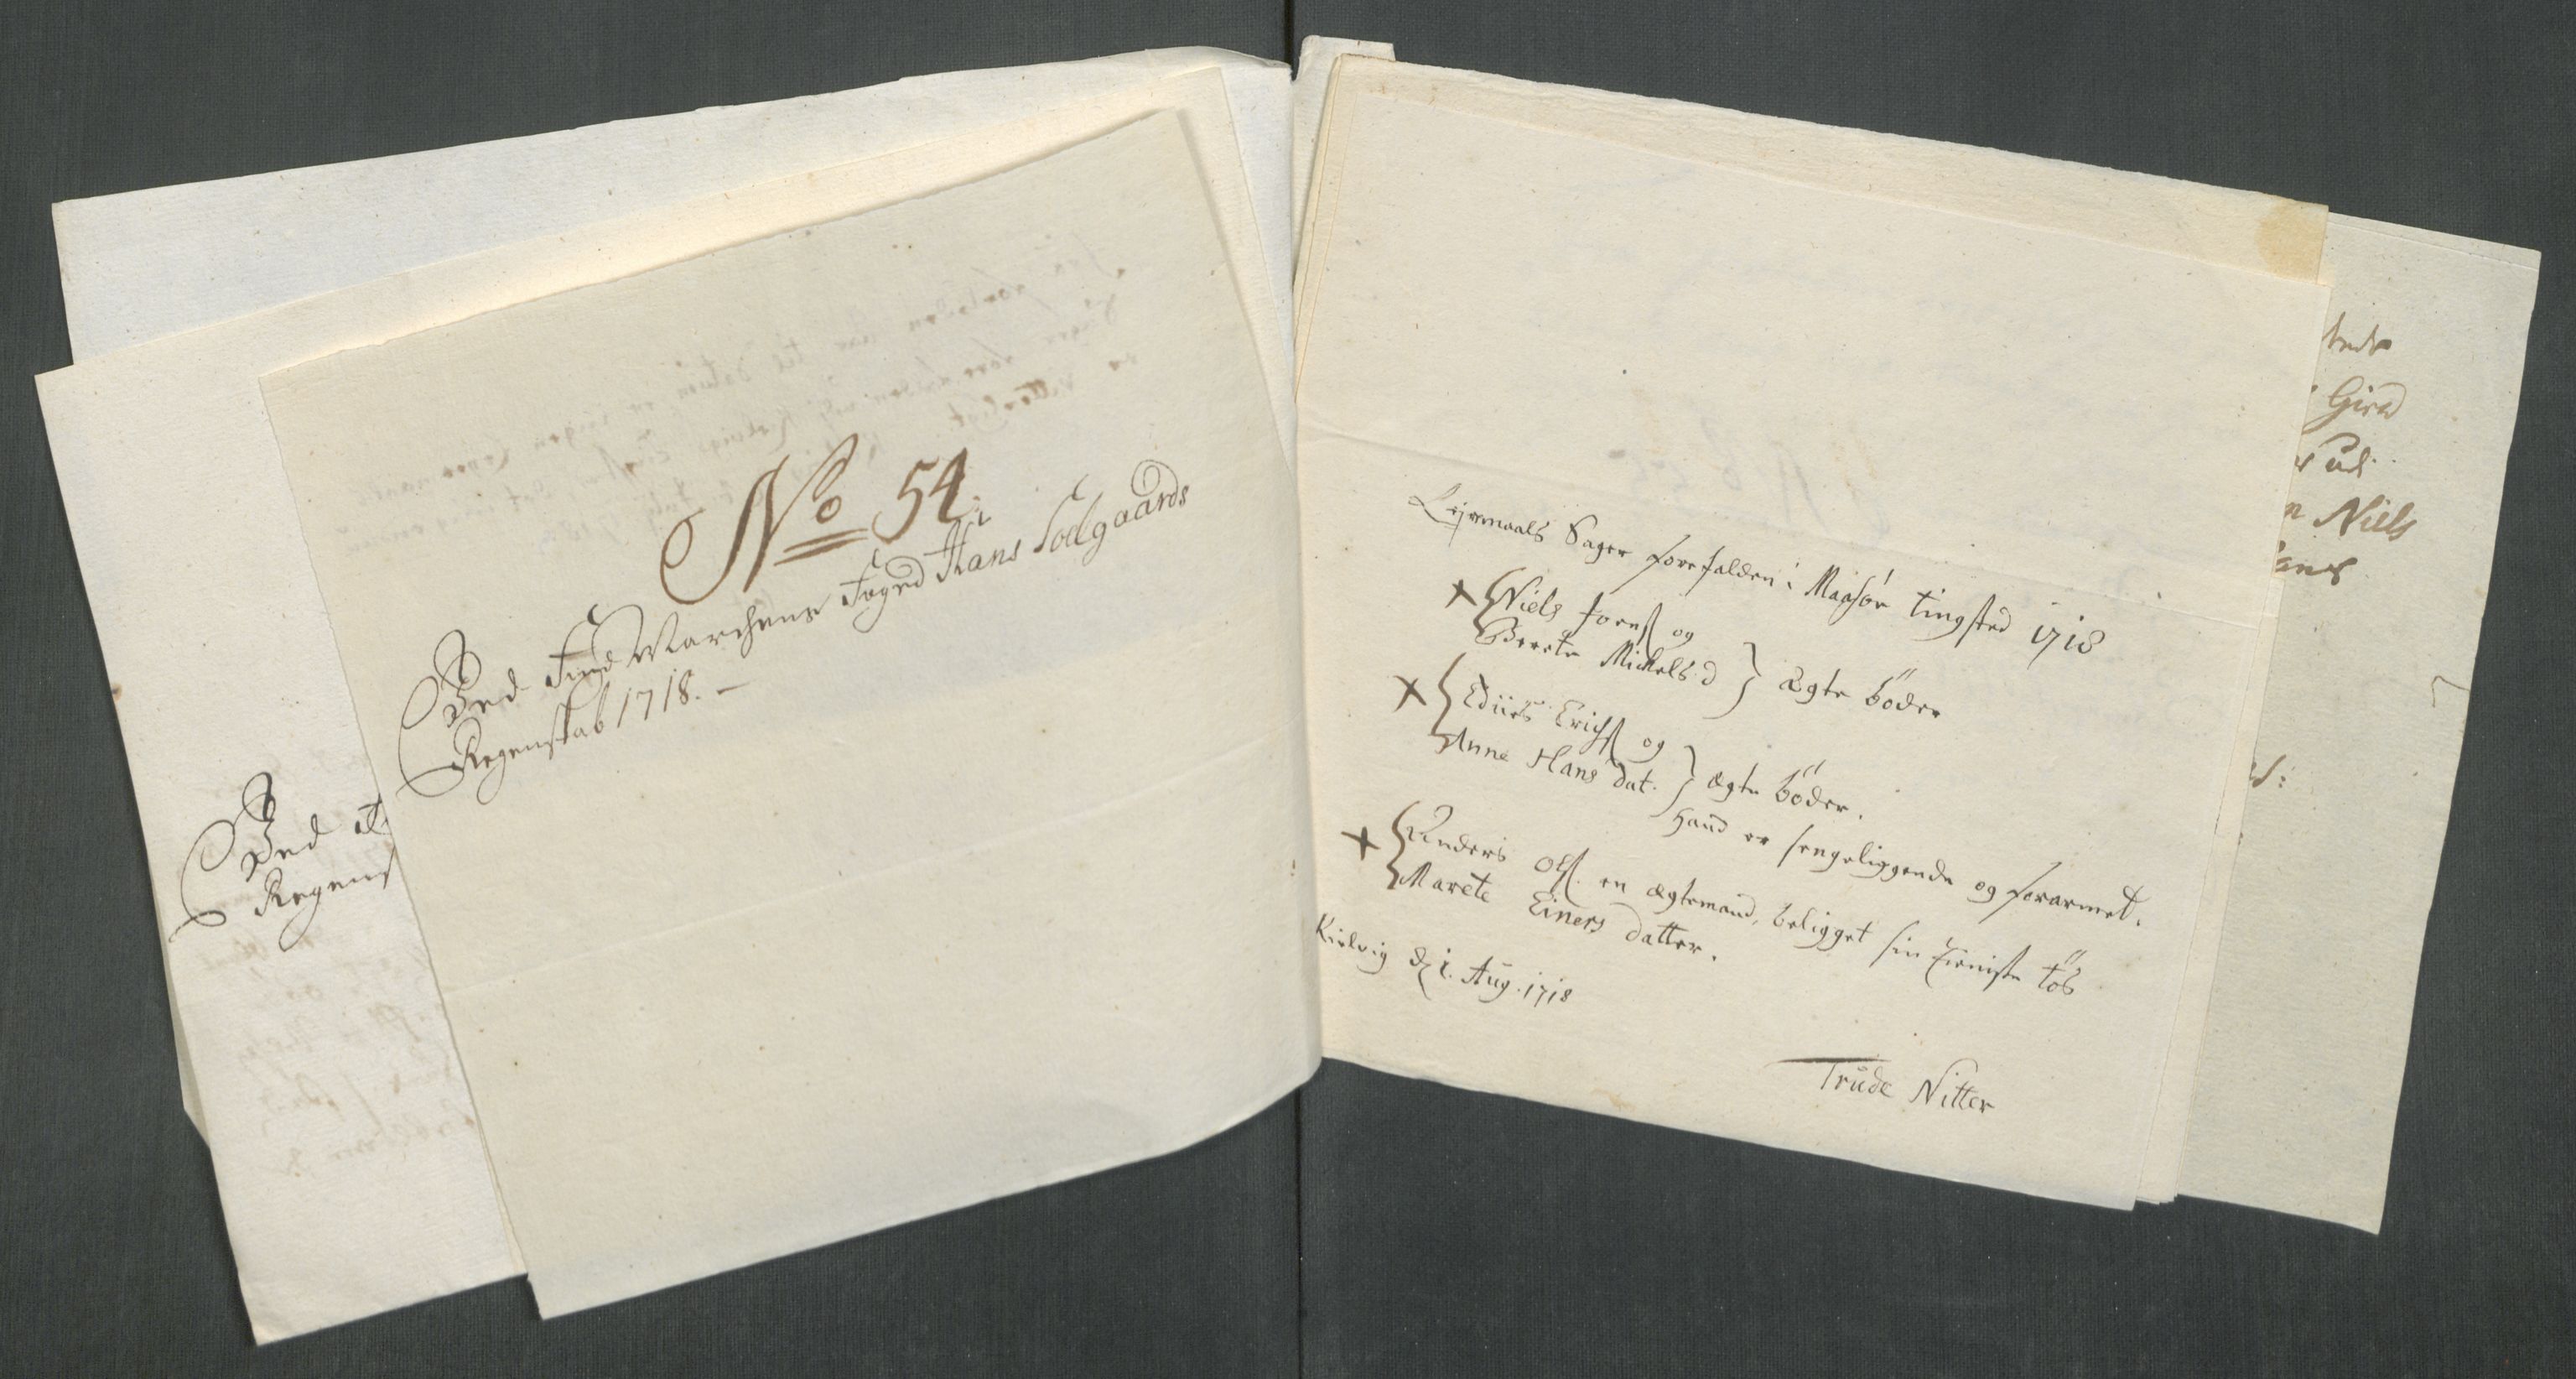 No 54.
Ved Find Marchens Foged Hans Sodgaards
Regenskab 1718. –
Ved
Regens
Lejermaals Sager forefalden i Maasøe tingsted 1718
Niels Joens og
Berete Mickels d } ægte bøder
Anne Hans Dat. } ægte bøder.
Erichs og
Hand er sengeliggende og forarmet.
Anders Ols. en ægtemand, beligget sin tieniste tøs
Marete Einers datter.
Kielvig d 1. Aug. 1718
Trude Nitter
Niels